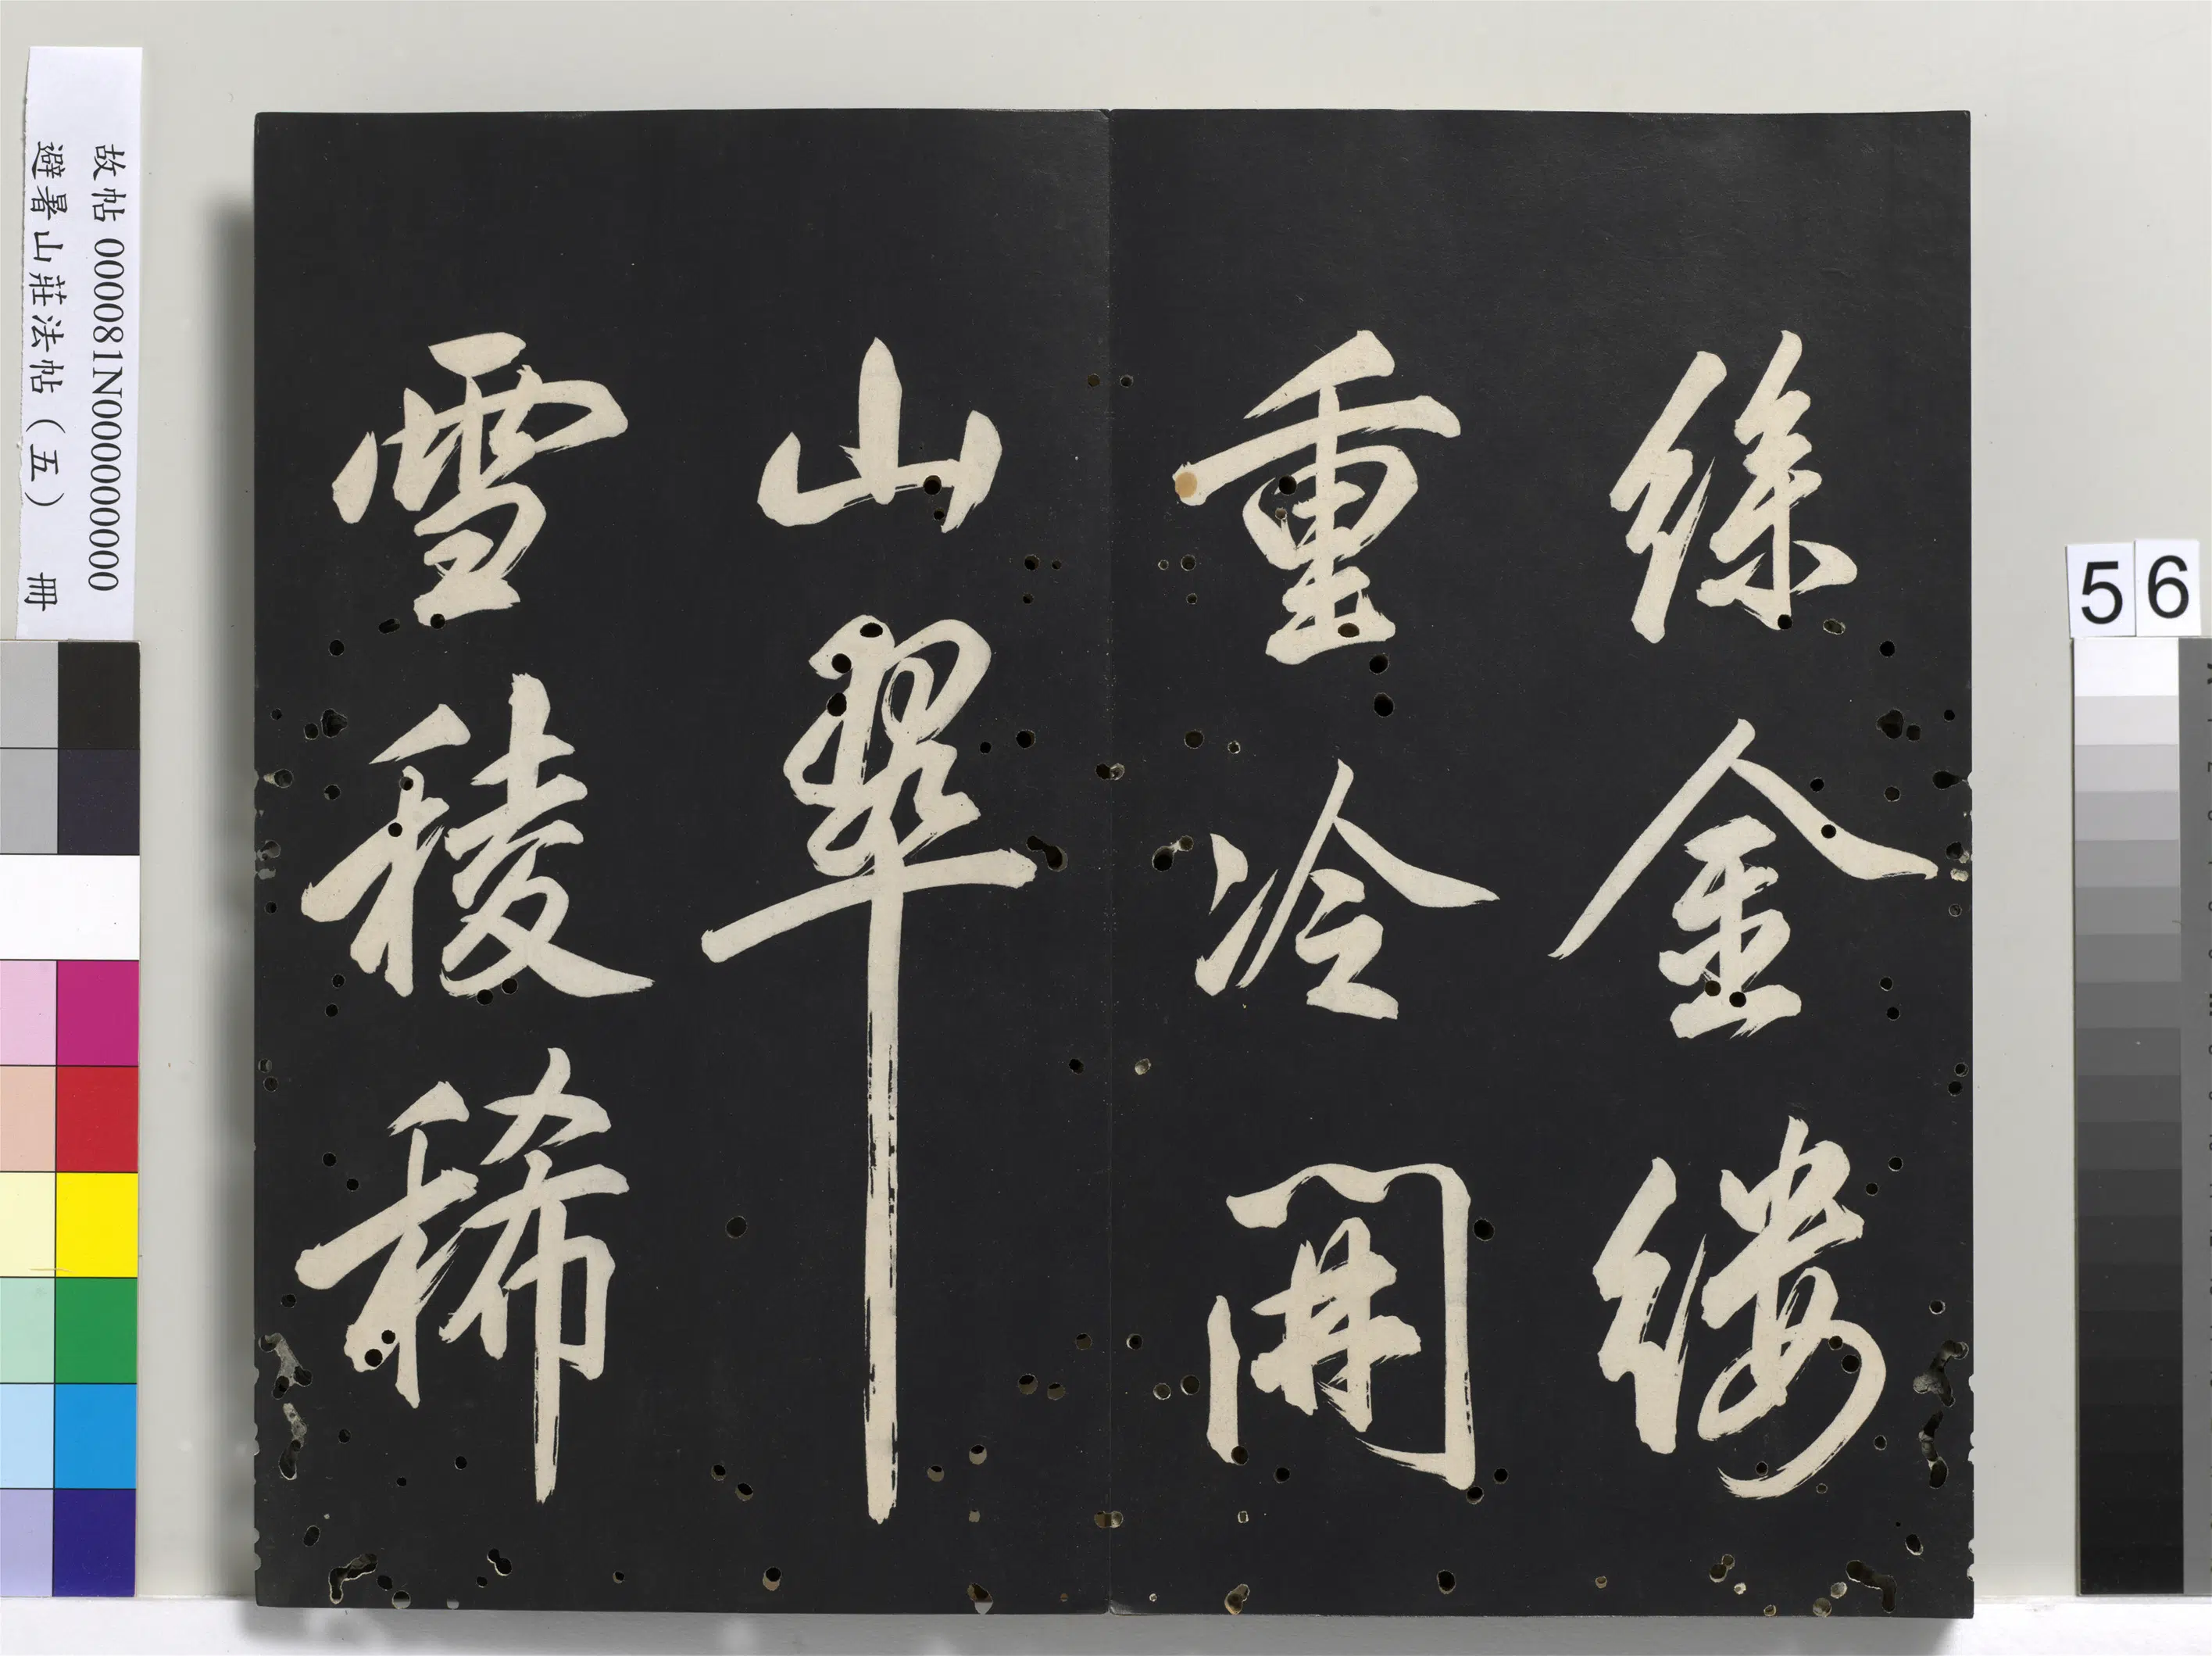 絲金縷
重冷開
山翠
雪稜稀
故帖 000081N000000000
避暑山莊法帖（五） 冊
56